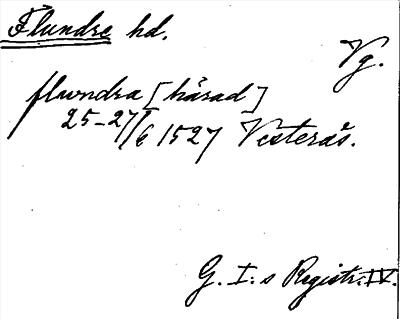 Flundre hd.
Vg.
flwndra [härad]
25-27/6 1527 Vesterås.
G. I:s Registr. IV.